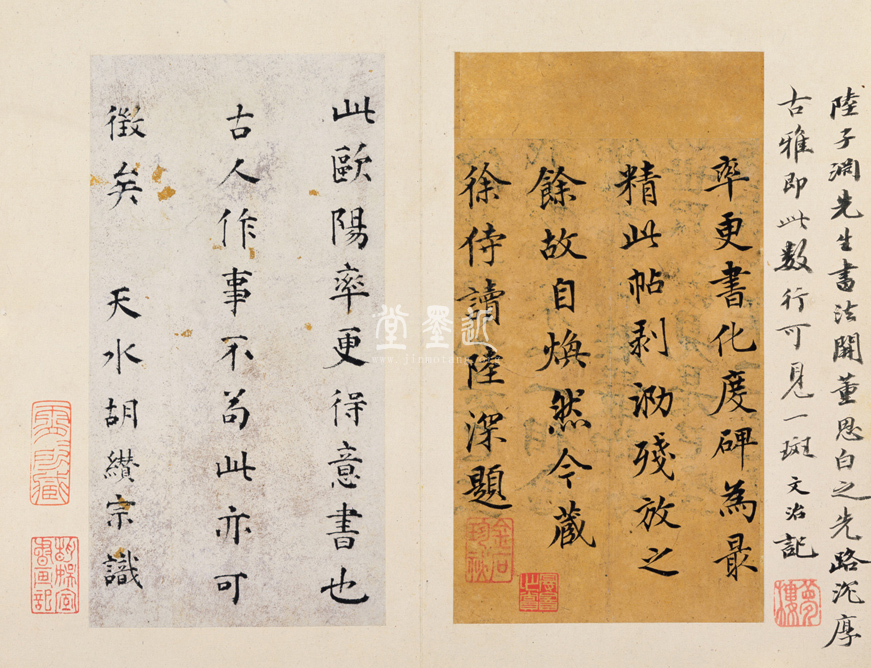 陸子淵先生書法開董思白之先路沉厚
古雅即此数行可見一斑 文治記
率更書化度碑為最
精此帖剥泐殘放之
餘故自焕然今藏
徐侍讀陸深題
此歐陽率更得意書也
古人作事不苟此亦可
徵矣 天水胡纘宗識
近墨堂